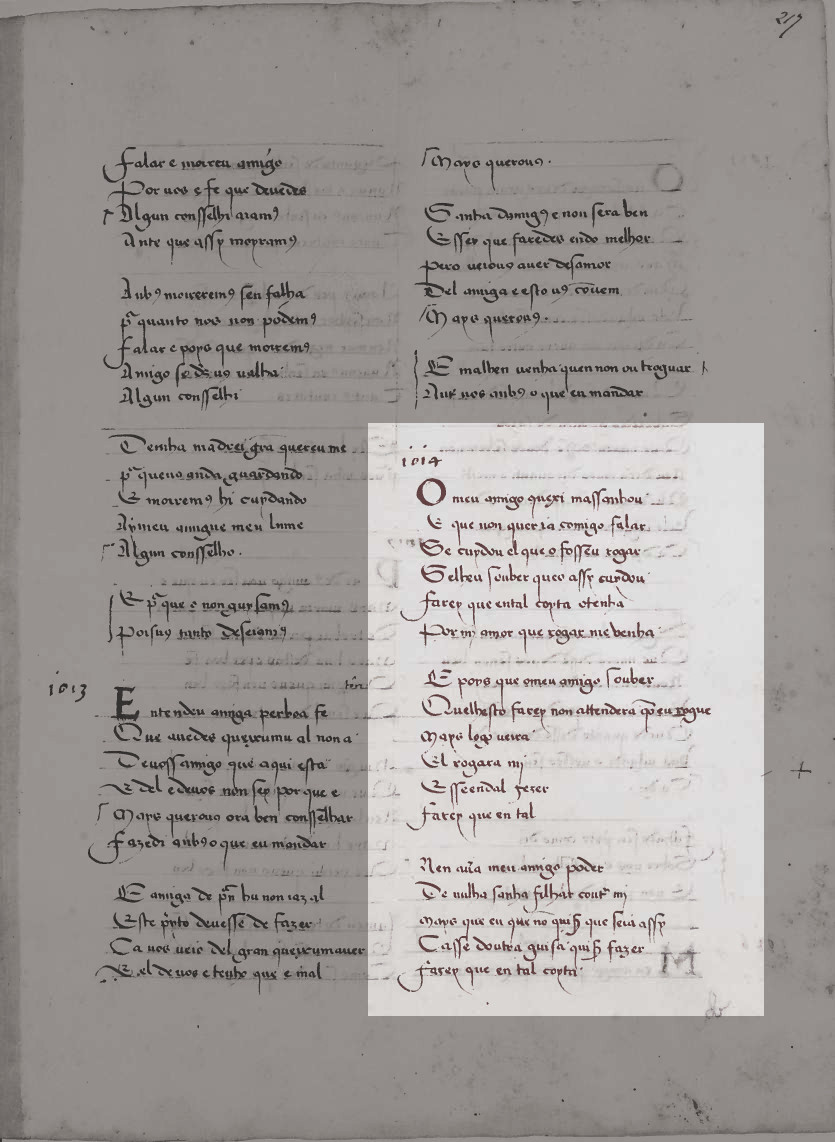 217
Falar e moireu amigo
Por uos e fe que deuedes
Algun consselhi aiam9
Ante que assy moyram9
Amb9 moirerem9 sen falha
pr̃ quanto nos non podem9
Falar e poys que moirem9
Amigo se d̃s u9 ualha
Algun consselhi
Demha madrei gra quereu me
pr̃ que uos anda guardando
E moirem9 hi cuydando
Ay meu amigue meu lume
Algun consselho.
E pr̃ que o non guysam9
Poisu9 tanto deseiam9
1013
Entendeu amiga per boa fe
Que auedes queyxumu al non a
De uoss amigo que aqui esta
E del e de uos non sey por que e
Mays querouos ora ben consselhar
Fazedi amb9 o que eu mandar
E amiga de pñ hu non iaz al
Este preyto deuesse de fazer
Ca uos ueio del gran queixum auer
E el de uos e tenho que e mal
Mays querou9.
Sanha damig9 e non sera ben
E ssey que faredes endo melhor
Pero ueiouos auer desamor
Del amiga e esto u9 conuem
Mays querou9.
E mal hen uenha quen non outroguar
Aue uos amb9 o que eu mandar
1014
O meu amigo quexi massanhou
E que non queria comigo falar
Se cuydou el que o fosseu rogar
Selheu souber queo assy cuydou
Farey que ental coyta o tenha
Por mj amor que rogar me uenha
E poys que omeu amigo souber
Quelhesto farey non attendera que eu rogue
Mays logo ueira
El rogara mj
E sseendal fezer
Farey que en tal
Nen aura meu amigo poder
De nulha sanha filhar contra mj
Mays que eu que no quiser que seia assy
Casse doutra guisa quiser fazer
Farey que en tal coyta